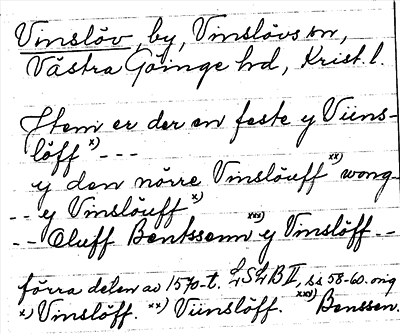 Vinslöv, by, Vinslövs sn,
Västra Göinge hd, Krist. l.
Item er der en feste y Viins-
löff x) ---
y den nörre Vinslöuff xx) wong-
-- y Vinslöuff x)
-- Oluff Bentssenn xxx) y Vinslöff --
förra delen av 1570-t. LSLB II, ss 58-60. orig
x) Vinslöff. xx) Viinslöff. xxx) Benssen.